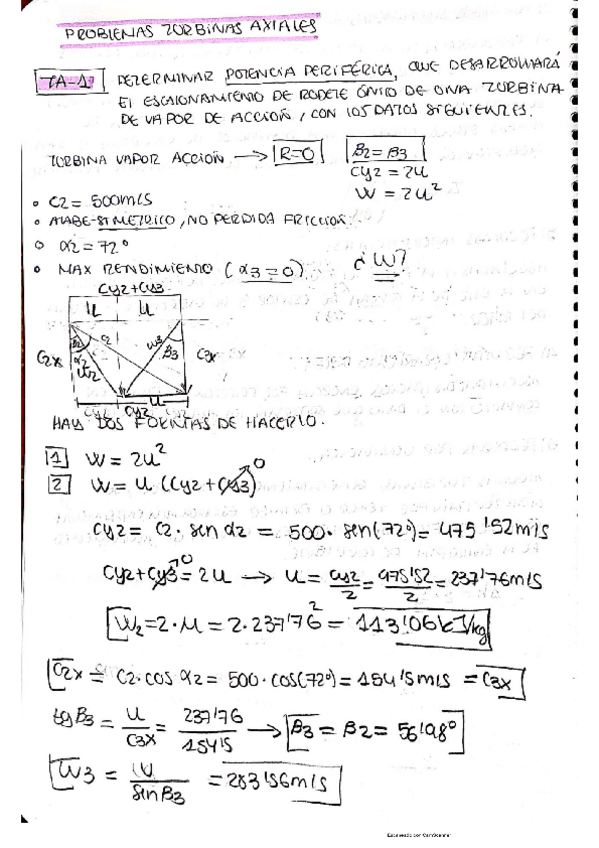 PROBLEMAS TURBINAS AXIALES
TA-1 DETERMINAR POTENCIA PERIFÉRICA, QUE DESARROLLARÁ
EL ESCALONAMIENTO DE RODETE ÚNICO DE UNA TURBINA
DE VAPOR DE ACCIÓN, CON LOS DATOS SIGUIENTES.
TURBINA VAPOR ACCIÓN → R=0 β2=β3
Cy2 = 2u
W = 2u²
C2 = 500m/s
ALABE SIMETRICO, NO PERDIDA FRICCIÓN.
α2=72°
MAX RENDIMIENTO (α3=0) ¿W?
Cy2+Cy3
u u
C2x β2 α2 C2 W2 W3 β3 C3x
Cy2 u
HAY DOS FORMAS DE HACERLO.
1 W = 2u²
2 W = u (Cy2+Cy3) 0
Cy2 = C2 · sen α2 = 500 · sen(72°) = 475'52m/s
Cy2+Cy3 = 2u → u = Cy2/2 = 475'52/2 = 237'76m/s
0
W2=2·u = 2·237'76² = 113'06kJ/kg
C2x = C2·cos α2 = 500·cos(72°) = 154'5m/s = C3x
tgβ3 = u/C3x = 237'76/154'5 → β3 = β2 = 56'98°
W3 = u/sinβ3 = 283'56m/s
Escaneado con CamScanner